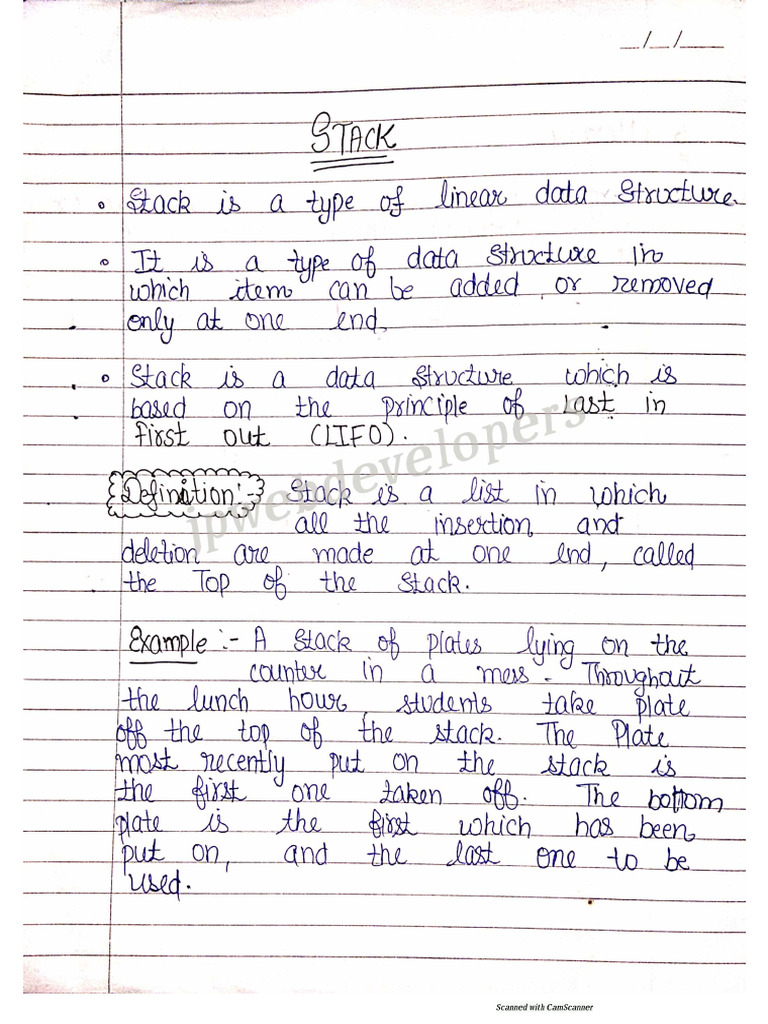 __/__/____
STACK
Stack is a type of linear data structure.
It is a type of data structure in
which item can be added or removed
only at one end.
Stack is a data structure which is
based on the principle of Last in
first out (LIFO).
Definition:- Stack is a list in which
all the insertion and
deletion are made at one end, called
the Top of the Stack.
Example:- A stack of plates lying on the
counter in a mess. Throughout
the lunch hour, students take plate
off the top of the stack. The Plate
most recently put on the stack is
the first one taken off. The bottom
plate is the first which has been
put on, and the last one to be
used.
jpwebdevelopers
Scanned with CamScanner